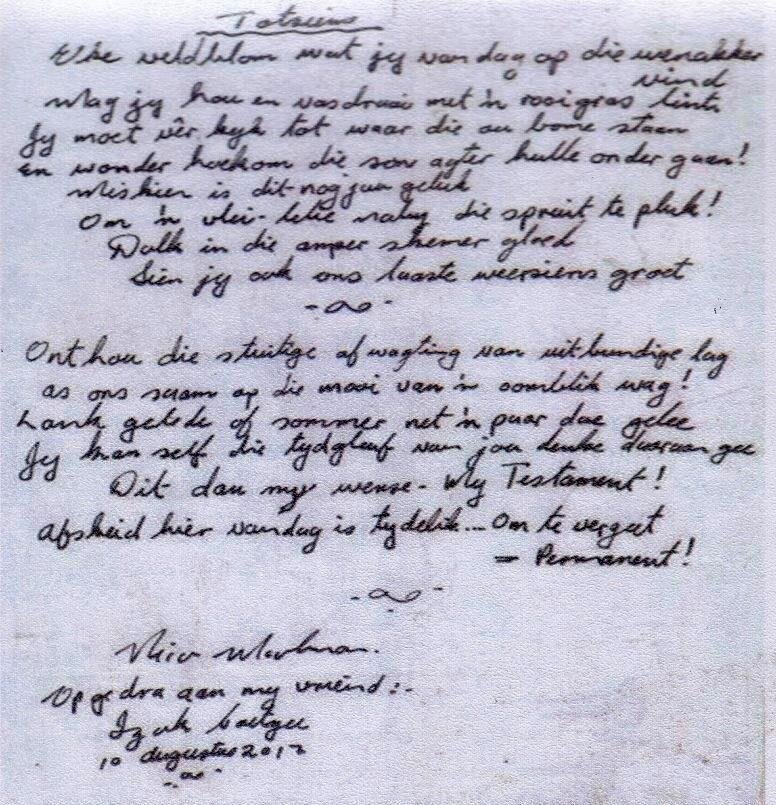 Totsiens
Elke veldblom wat jy vandag op die wenakker
vind
Mag jy hou en vasdraai met 'n rooigras lint.
Jy moet vêr kyk tot waar die ou bome staan
En wonder hoekom die son agter hulle onder gaan!
Miskien is dit nog jou geluk
Om 'n vlei-lelie naby die spruit te pluk!
Dalk in die amper skemer gloed
Sien jy ook ons laaste weersiens groet
Onthou die stuitige afwagting van uitbundige lag
as ons saam op die mooi van 'n oomblik wag!
Lank gelede of sommer net 'n paar dae gelee
Jy kan self die tydgleuf van jou denke daaraan gee
Dit dan my wense - My Testament!
Afskeid hier vandag is tydelik... Om te vergeet
= Permanent!
Opgedra aan my vriend:-
Izak Coetzee
10 Augustus 2012